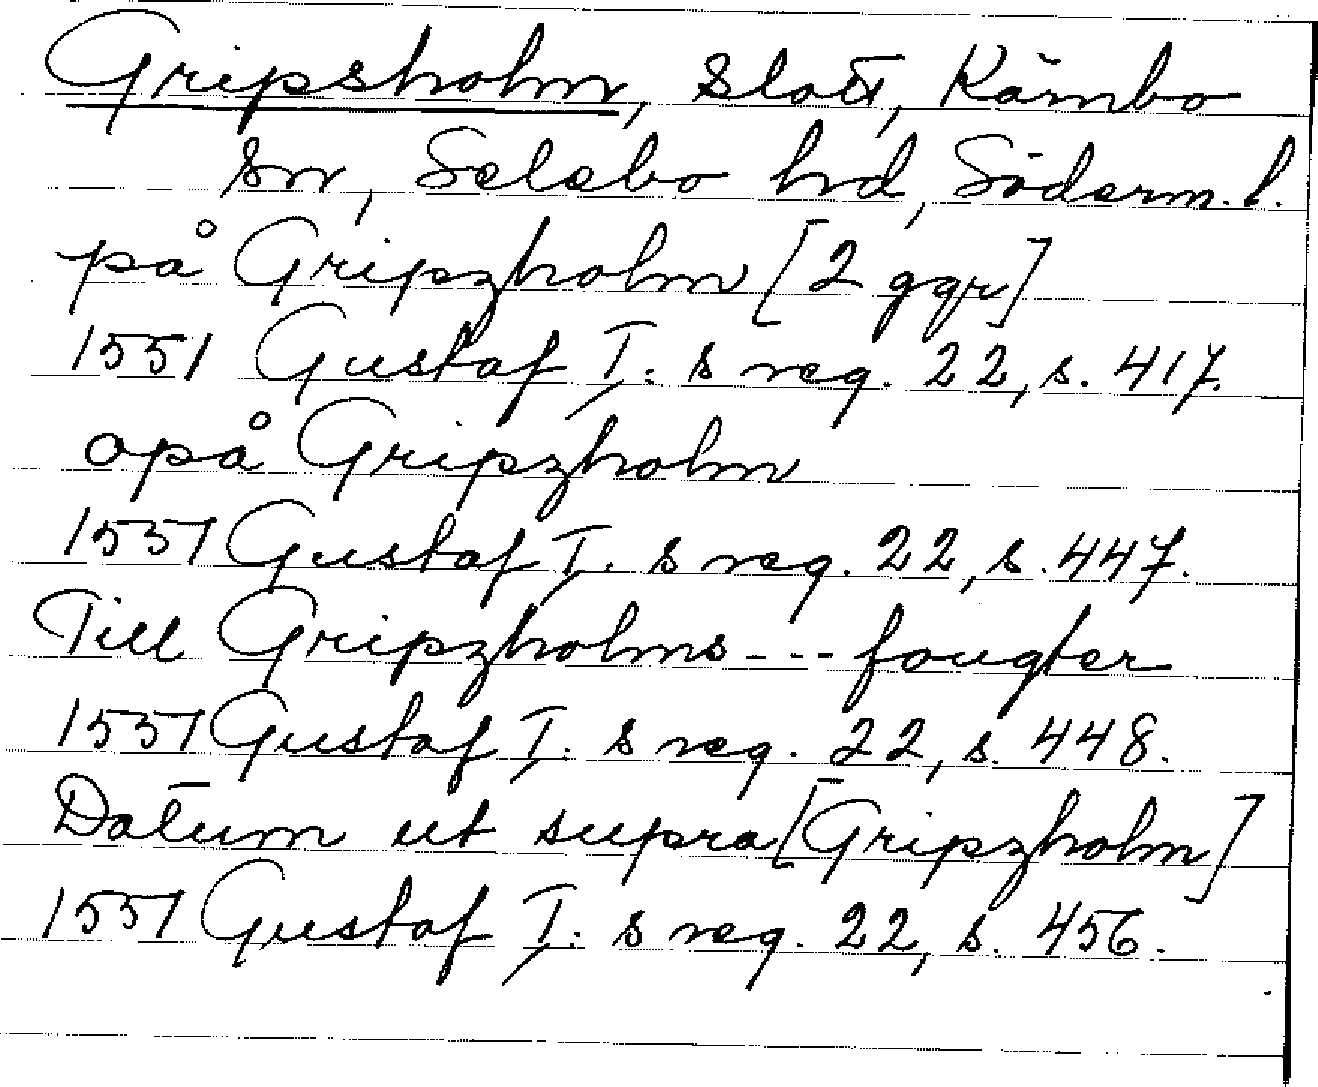 Gripsholm, slott, Kärnbo
sn, Selebo hd, Söderm. l.
på Gripzholm [2 ggr]
1551 Gustaf I: s reg. 22, s. 417.
opå Gripzholm
1551 Gustaf I: s reg. 22, s. 447.
Till Gripzholms --- fougter
1551 Gustaf I: s reg. 22, s. 448.
Datum ut supra [Gripzholm]
1551 Gustaf I: s reg. 22, s. 456.